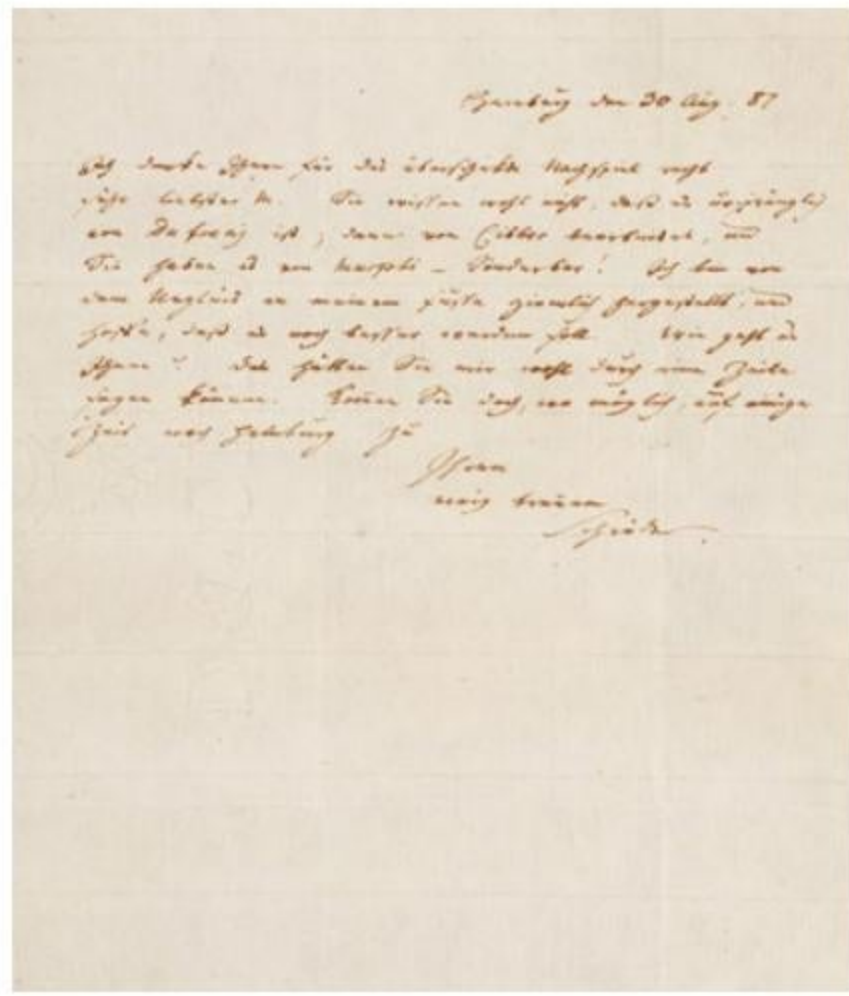 Hamburg den 30 Aug. 87
Ich danke Ihnen für das überschickte Nachspiel recht
sehr liebster M. Sie wissen wohl nicht, daß es ursprünglich
von Dufresny ist, dann von Cibber bearbeitet, und
Sie haben es von Murphi – Sonderbar! Ich bin von
dem Unglück an meinem Fuße ziemlich hergestellt, und
hoffe, daß es noch besser werden soll. Wie geht es
Ihnen? Das hätten Sie mir wohl durch eine Zeile
sagen können. Komen Sie doch, wo möglich, auf einige
Zeit nach Hamburg zu
Ihrem
ewig treuen
Schröder